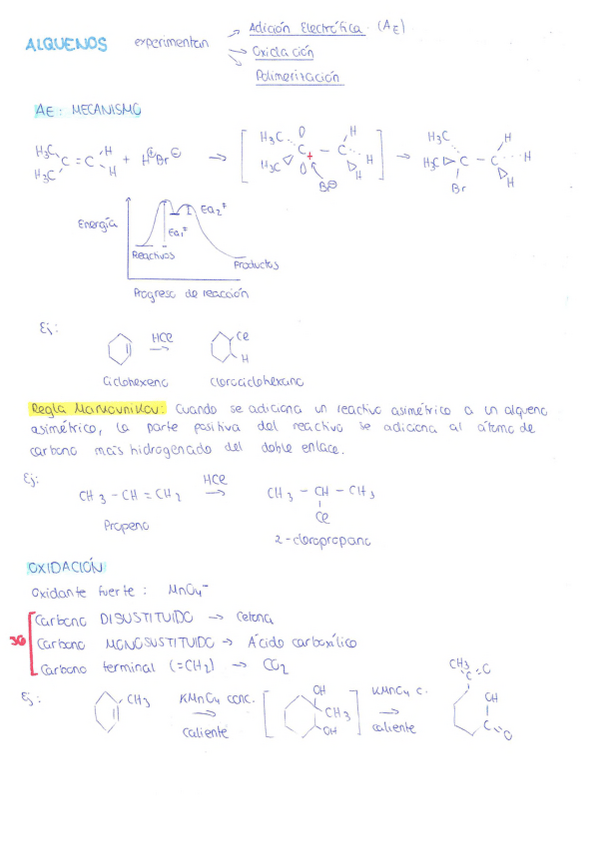 ALQUENOS experimentan → Adición Electrófica (AE)
→ Oxidación
→ Polimerización
AE: MECANISMO
H3C H3C C = C H H + H⊕ Br⊖ → [ H3C H3C C + – C H H H Br⊖ ] → H3C H3C C – C H H H Br
Energía Ea1‡ Ea2‡
Reactivos Productos
Progreso de reacción
Ej:
HCl → Cl H
Ciclohexeno clorociclohexano
Regla Markovnikov: Cuando se adiciona un reactivo asimétrico a un alqueno
asimétrico, la parte positiva del reactivo se adiciona al átomo de
carbono más hidrogenado del doble enlace.
Ej: CH3 – CH = CH2 HCl → CH3 – CH – CH3
Cl
Propeno 2-cloropropano
OXIDACIÓN
Oxidante fuerte: MnO4⁻
Carbono DISUSTITUIDO → Cetona
Carbono MONOSUSTITUIDO → Ácido carboxílico
Carbono terminal (=CH2) → CO2
Ej: CH3 KMnO4 conc. → caliente [ OH CH3 OH ] KMnO4 c. → caliente CH3 C=O OH C=O